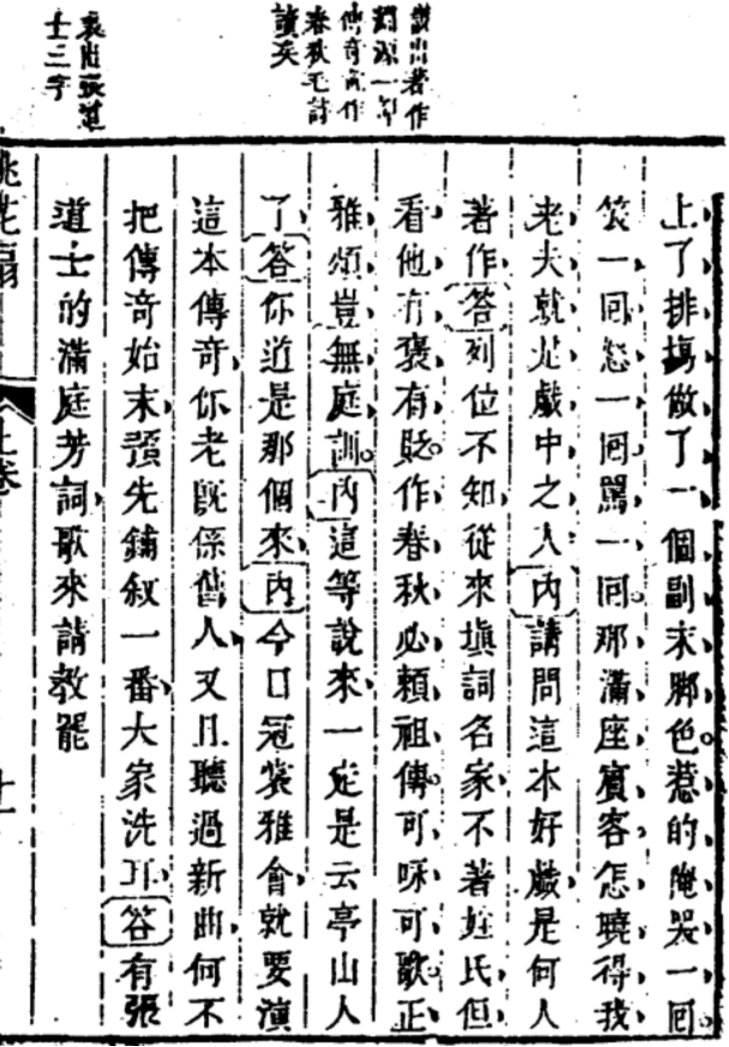 說出著作
淵源一部
傳奇直作
春秋毛詩
讀矣
表出張道
士三字
上了排場做了一個副末脚色惹的俺哭一回
笑一回怒一回罵一回那滿座賓客怎曉得我
老夫就是戲中之人內請問這本好戲是何人
著作答列位不知從來填詞名家不著姓氏但
看他有褒有貶作春秋必賴祖傳可咏可歌正
雅頌豈無庭訓內這等說來一定是云亭山人
了答你道是那個來內今日冠裳雅會就要演
這本傳奇你老既係舊人又且聽過新曲何不
把傳奇始末預先鋪叙一番大家洗耳答有張
道士的滿庭芳詞歌來請教罷
桃花扇
上卷
十一